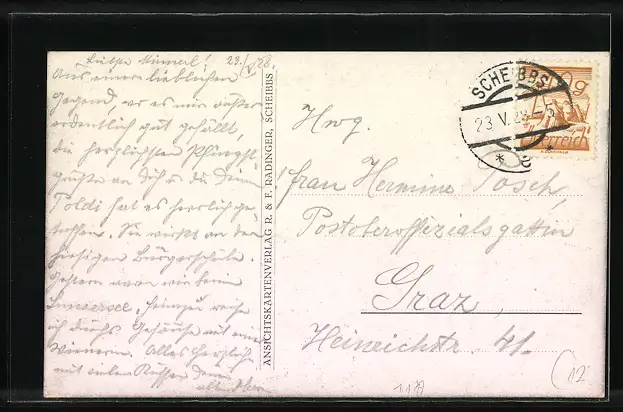 Liebe Minnerl! 23./V. 28.
Aus einer lieblichen
Gegend, wo es mir außer-
ordentlich gut gefällt,
die herzlichsten Pfingst-
grüße an Dich u. die Deinen
Poldi hat es herrlich ge-
troffen. Sie wirkt an der
hiesigen Bürgerschule.
Gestern waren wir beim
Lunzersee. Heimzu reise
ich durchs Gesäuse mit einer
Wienerin. Alles Herzliche
mit vielen Küssen Deine
ANSICHTSKARTENVERLAG R. & F. RADINGER, SCHEIBBS
SCHEIBBS
23 V. 28 -5
Österreich
Hwg.
Frau Hermine Posch,
Postoberoffizialsgattin
Graz,
Heinrichstr. 41.
12